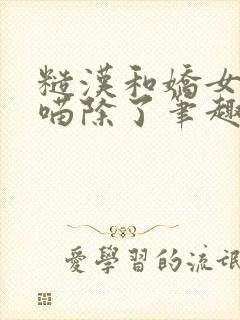 糙漢和嬌女
喵除了筆趣
愛學習的流氓